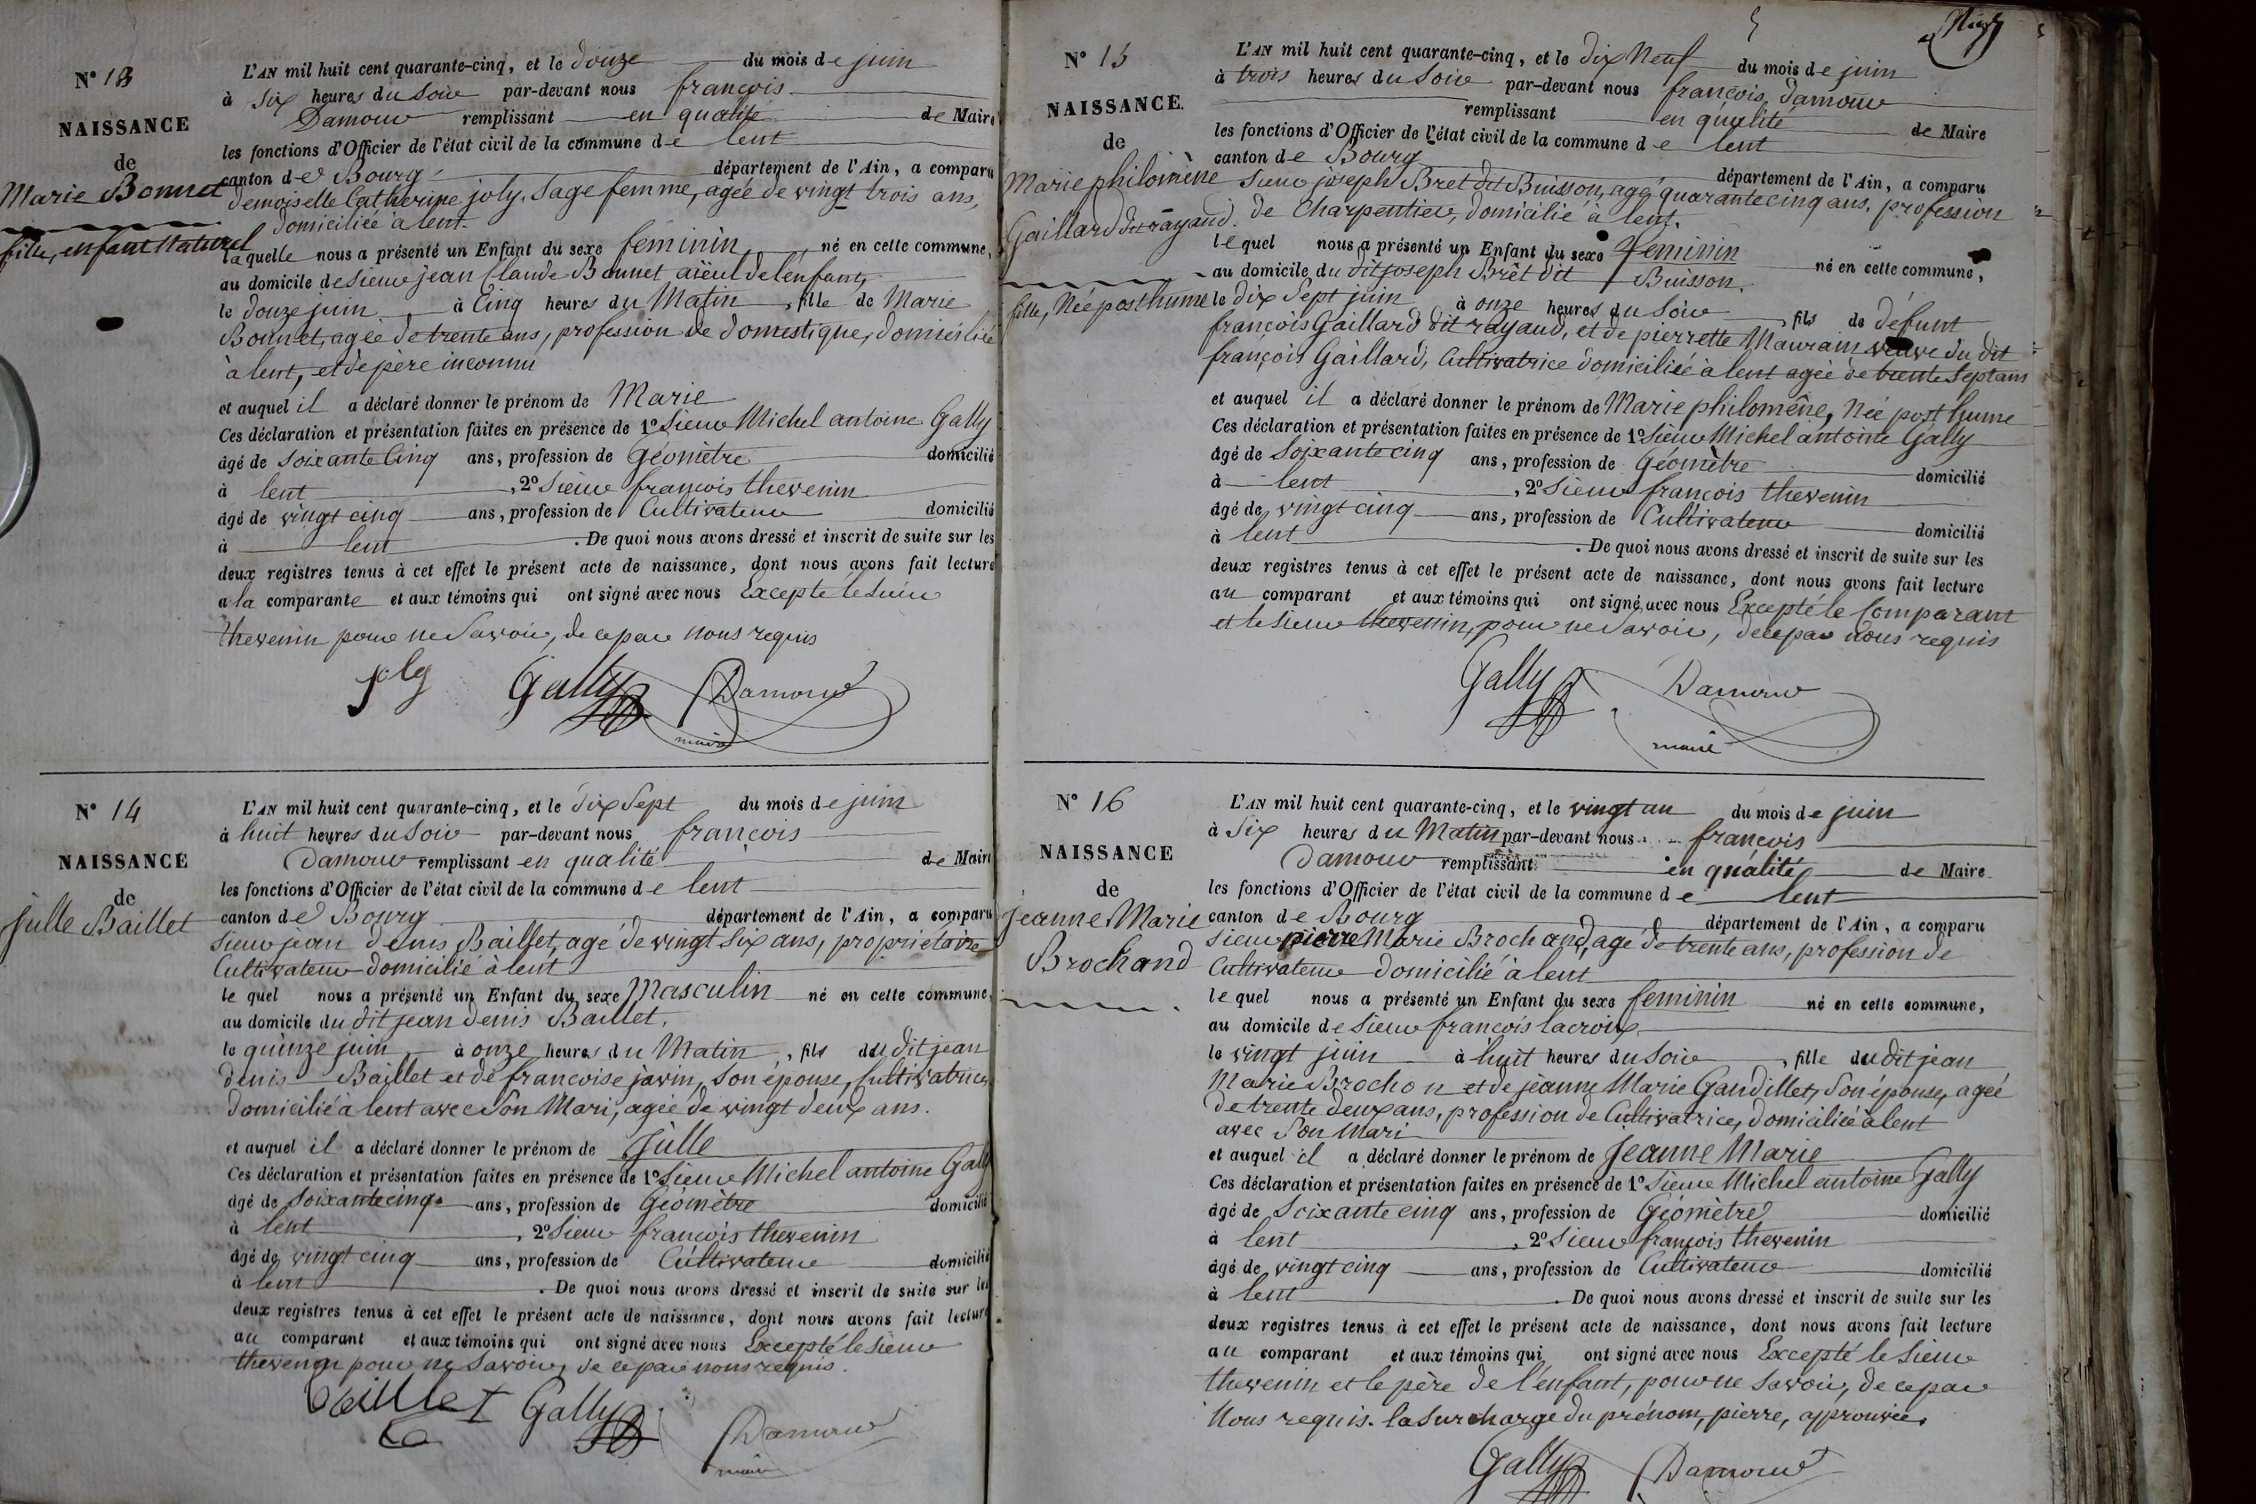 N° 13
NAISSANCE
de
Marie Bonnet
fille, enfant Naturel
L'AN mil huit cent quarante-cinq, et le douze du mois de juin
à Six heures du Soir par-devant nous françois
Damour remplissant en qualité de Maire
les fonctions d'Officier de l'état civil de la commune de lent
canton de Bourg département de l'Ain, a comparu
demoiselle Catherine joly, Sage femme, agée de vingt trois ans,
domiciliée à lent.
laquelle nous a présenté un Enfant du sexe feminin né en cette commune,
au domicile de Sieur jean Claude Bonnet aïeul de l'enfant,
le douze juin à Cinq heures du Matin, fille de Marie
Bonnet, agée de trente ans, profession de domestique, domiciliée
à lent, et de père inconnu
et auquel il a déclaré donner le prénom de Marie
Ces déclaration et présentation faites en présence de 1° Sieur Michel antoine Gally
âgé de soixante Cinq ans, profession de Géomètre domicilié
à lent, 2° Sieur françois thevenin
âgé de vingt cinq ans, profession de Cultivateur domicilié
à lent. De quoi nous avons dressé et inscrit de suite sur les
deux registres tenus à cet effet le présent acte de naissance, dont nous avons fait lecture
a la comparante et aux témoins qui ont signé avec nous Excepté le Sieur
thevenin pour ne Savoir, de ce par nous requis
Gally Damour
maire
N° 14
NAISSANCE
de
Julle Baillet
L'AN mil huit cent quarante-cinq, et le dix Sept du mois de juin
à huit heures du Soir par-devant nous françois
Damour remplissant en qualité de Maire
les fonctions d'Officier de l'état civil de la commune de lent
canton de Bourg département de l'Ain, a comparu
Sieur jean denis Baillet, agé de vingt Six ans, propriétaire
Cultivateur domicilié à lent
le quel nous a présenté un Enfant du sexe Masculin né en cette commune,
au domicile du dit jean denis Baillet,
le quinze juin à onze heures du Matin, fils du dit jean
denis Baillet et de françoise javin, Son épouse, Cultivatrice,
domicilié à lent avec Son Mari, agée de vingt deux ans.
et auquel il a déclaré donner le prénom de Julle
Ces déclaration et présentation faites en présence de 1° Sieur Michel antoine Gally
âgé de Soixante cinq ans, profession de Géomètre domicilié
à lent, 2° Sieur françois thevenin
âgé de vingt cinq ans, profession de Cultivateur domicilié
à lent. De quoi nous avons dressé et inscrit de suite sur les
deux registres tenus à cet effet le présent acte de naissance, dont nous avons fait lecture
au comparant et aux témoins qui ont signé avec nous Excepté le Sieur
thevenin pour ne Savoir, de ce par nous requis.
Baillet Gally Damour
maire
N° 15
NAISSANCE.
de
Marie philomène
Gaillard dit rayaud.
fille, Née posthume
L'AN mil huit cent quarante-cinq, et le dix Neuf du mois de juin
à trois heures du Soir par-devant nous françois Damour
remplissant en qualité de Maire
les fonctions d'Officier de l'état civil de la commune de lent
canton de Bourg département de l'Ain, a comparu
Sieur joseph Bret dit Buisson, agé quarante cinq ans, profession
de Charpentier, domicilié à lent.
lequel nous a présenté un Enfant du sexe feminin né en cette commune,
au domicile du dit joseph Brêt dit Buisson.
le dix Sept juin à onze heures du Soir, fils de défunt
françois Gaillard dit rayaud, et de pierrette Maurain veuve du dit
françois Gaillard, Cultivatrice domiciliée à lent agée de trente Sept ans
et auquel il a déclaré donner le prénom de Marie philomène, Née posthume
Ces déclaration et présentation faites en présence de 1° Sieur Michel antoine Gally
âgé de Soixante cinq ans, profession de Géomètre domicilié
à lent, 2° Sieur françois thevenin
âgé de vingt cinq ans, profession de Cultivateur domicilié
à lent. De quoi nous avons dressé et inscrit de suite sur les
deux registres tenus à cet effet le présent acte de naissance, dont nous avons fait lecture
au comparant et aux témoins qui ont signé avec nous Excepté le Comparant
et le Sieur thevenin, pour ne Savoir, de ce par Nous requis
Gally Damour
maire
N° 16
NAISSANCE
de
Jeanne Marie
Brochand
L'AN mil huit cent quarante-cinq, et le vingt un du mois de juin
à Six heures du Matin par-devant nous françois
Damour remplissant en qualité de Maire
les fonctions d'Officier de l'état civil de la commune de lent
canton de Bourg département de l'Ain, a comparu
Sieur pierre Marie Brochand, agé de trente ans, profession de
Cultivateur domicilié à lent
le quel nous a présenté un Enfant du sexe feminin né en cette commune,
au domicile de Sieur françois lacroix,
le vingt juin à huit heures du Soir, fille du dit jean
Marie Brochon et de jeanne Marie Gandillet, Son épouse, agée
de trente deux ans, profession de Cultivatrice, domiciliée à lent
avec Son Mari
et auquel il a déclaré donner le prénom de Jeanne Marie
Ces déclaration et présentation faites en présence de 1° Sieur Michel antoine Gally
âgé de Soixante cinq ans, profession de Géomètre domicilié
à lent, 2° Sieur françois thevenin
âgé de vingt cinq ans, profession de Cultivateur domicilié
à lent. De quoi nous avons dressé et inscrit de suite sur les
deux registres tenus à cet effet le présent acte de naissance, dont nous avons fait lecture
au comparant et aux témoins qui ont signé avec nous Excepté le Sieur
thevenin et le père de l'enfant, pour ne Savoir, de ce par
Nous requis. la Surcharge du prénom, pierre, approuvée.
Gally Damour